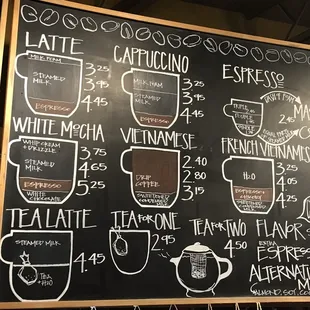 LATTE
MILK FOAM
STEAMED
MILK
ESPRESSO
3.25
3.95
4.45
CAPPUCCINO
MILK FOAM
STEAMED
MILK
ESPRESSO
3.25
3.95
4.45
ESPRESSO
TRIPLE
WHITE MOCHA
WHIP CREAM
+ DRIZZLE
STEAMED
MILK
ESPRESSO
WHITE
CHOCOLATE
3.75
4.65
5.25
VIETNAMESE
DRIP
COFFEE
SWEETENED
CONDENSED
MILK
2.40
2.80
3.15
FRENCH VIETNAMESE
H2O
ESPRESSO
SWEETENED
TEA LATTE
STEAMED MILK
TEA
+ H2O
4.45
TEA FOR ONE
2.95
TEA FOR TWO
4.50
FLAVOR
EXTRA
ESPRESS
ALTERNATI
ALMOND, SOY, CO